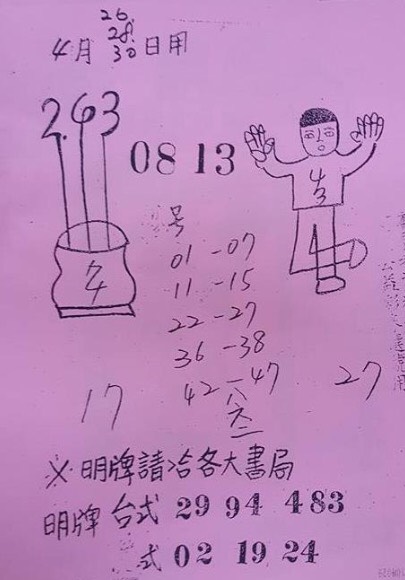 26.
28.
4月30日用
2.63
08 13
4
3
1
号
01-07
11-15
22-27
36-38
42-47
六
27
17
※明牌請洽各大書局
明牌 台式 29 94 483
式 02 19 24